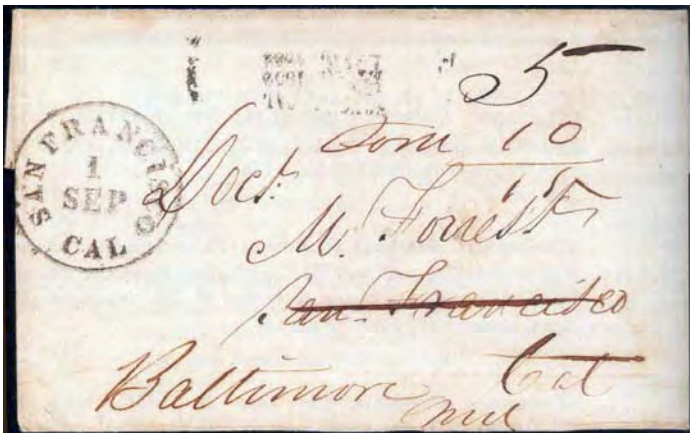 5
SAN FRANCISCO
1
SEP
CAL
10
15
Doct.
M. Forrest
San Francisco
Cal
Baltimore
Md